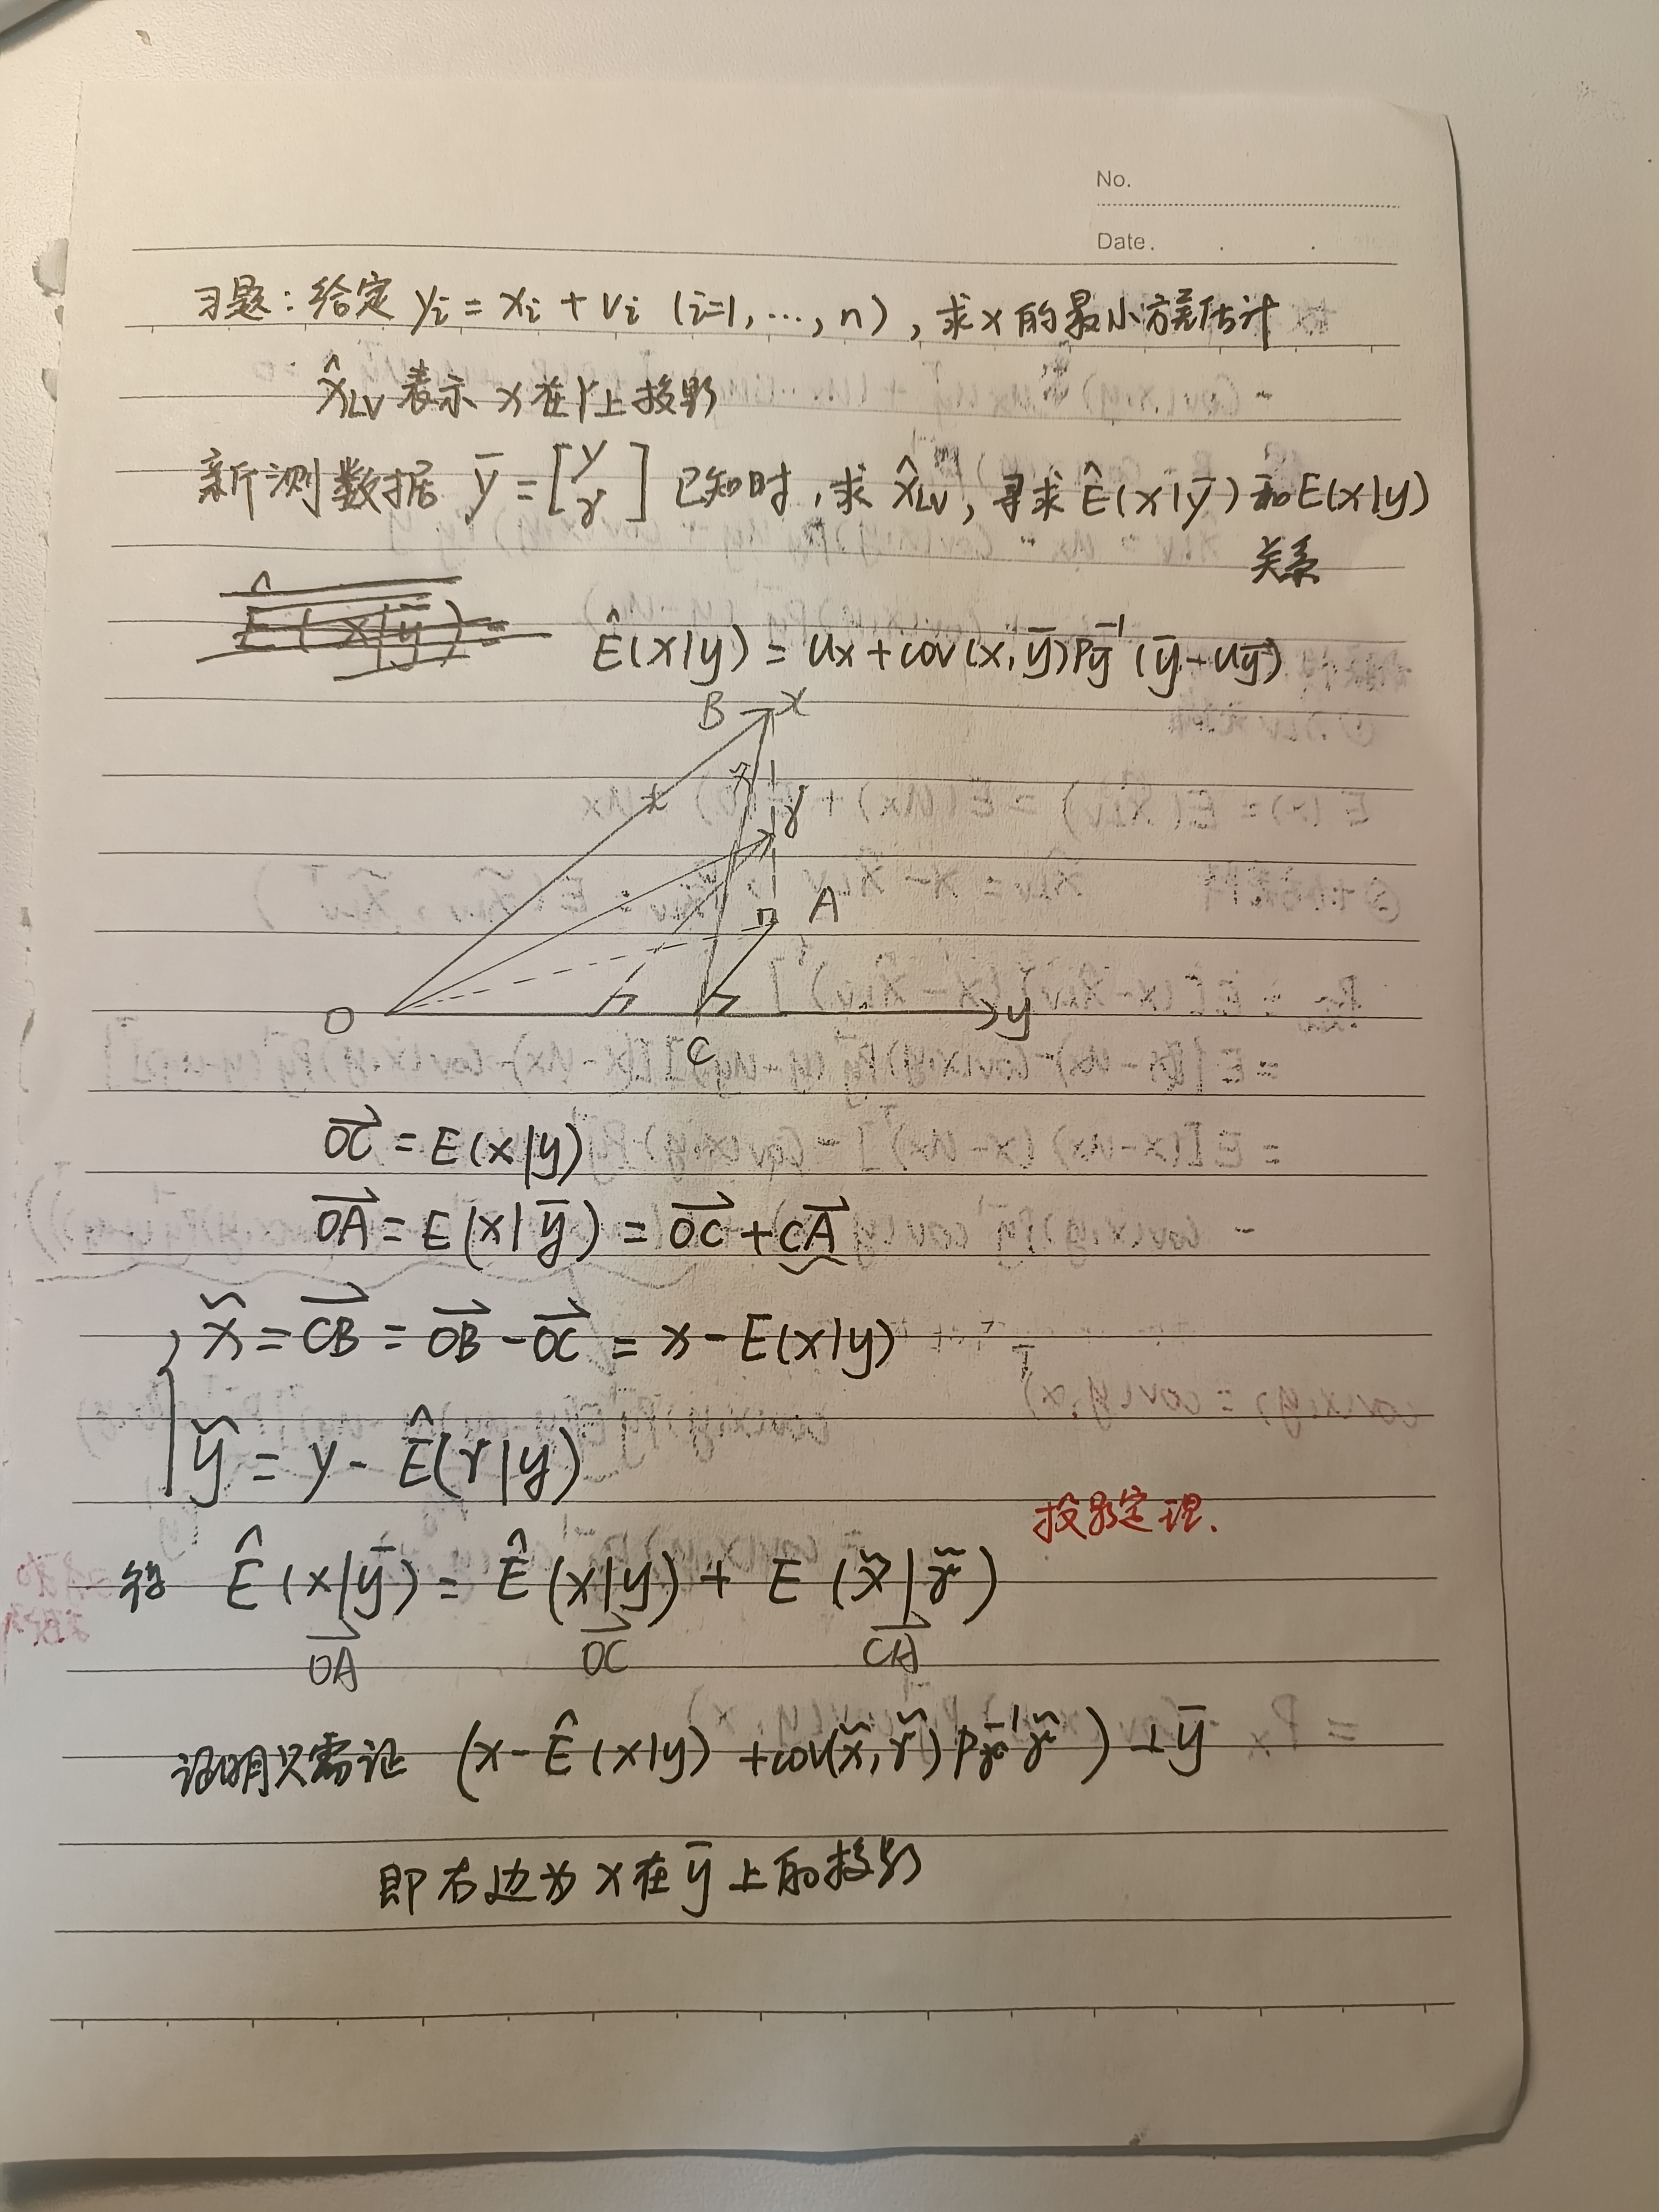 No.
Date.
习题：给定 yi = xi + vi (i=1, ..., n)，求x的最小方差估计
x̂LV 表示 x 在Y上投影
新测数据 ȳ = [y r] 已知时，求 x̂LV，寻求 Ê(x|ȳ) 和 E(x|y)
关系
Ê(x|ȳ) =
Ê(x|y) = Ux + cov(x, ȳ)Pȳ⁻¹(ȳ - Uȳ)
B x
x x̃
r
A
O y
C
OC = E(x|y)
OA = E(x|ȳ) = OC + CA
x̃ = CB = OB - OC = x - E(x|y)
ỹ = y - Ê(r|y)
投影定理.
得 Ê(x|ȳ) = Ê(x|y) + E(x̃|r̃)
OA OC CA
证明只需证 (x - Ê(x|y) + cov(x̃, r̃)Pr̃⁻¹ r̃) ⊥ ȳ
即右边为 x 在 ȳ 上的投影